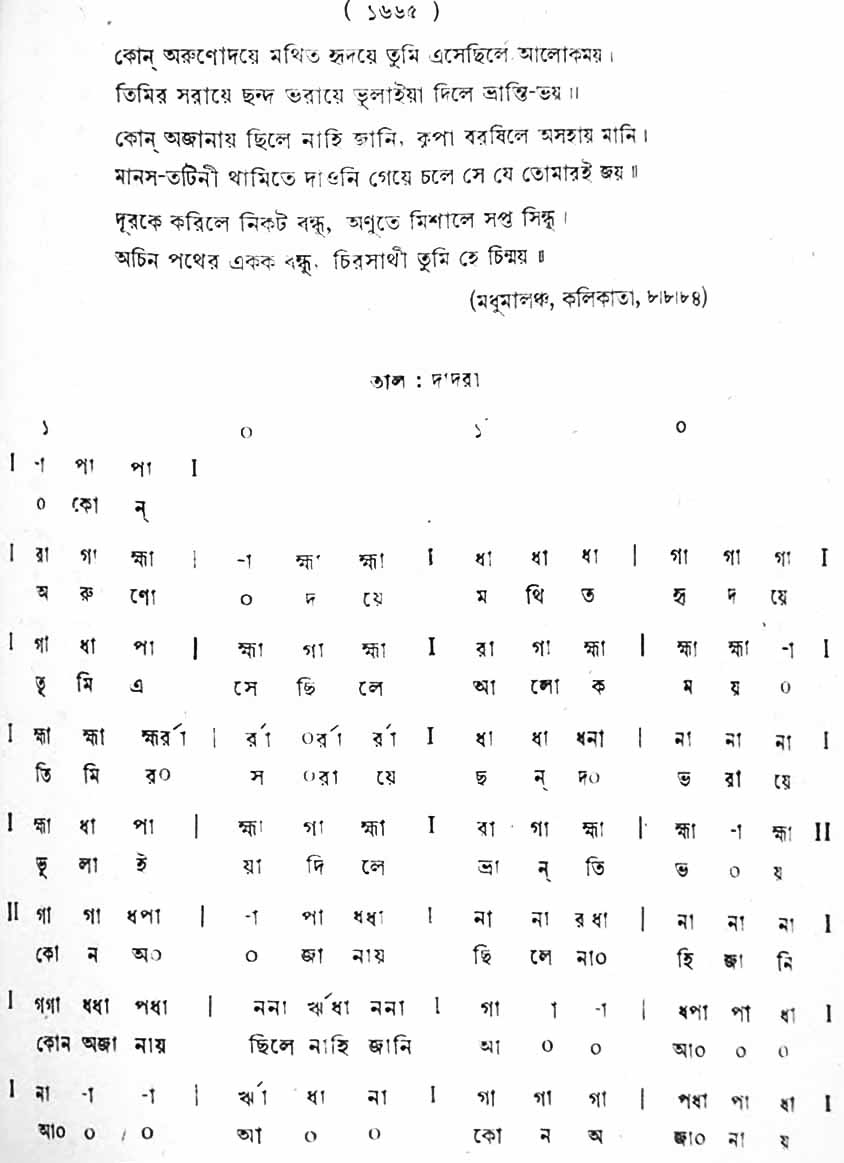 ( ১৬৬৫ )
কোন্ অরুণোদয়ে মথিত হৃদয়ে তুমি এসেছিলে আলোকময়।
তিমির সরায়ে ছন্দ ভরায়ে ভুলাইয়া দিলে ভ্রান্তি-ভয়॥
কোন্ অজানায় ছিলে নাহি জানি, কৃপা বরষিলে অসহায় মানি।
মানস-তটিনী থামিতে দাওনি গেয়ে চলে সে যে তোমারই জয়॥
দূরকে করিলে নিকট বন্ধু, অণুতে মিশালে সপ্ত সিন্ধু।
অচিন পথের একক বন্ধু, চিরসাথী তুমি হে চিন্ময়॥
(মধুমালঞ্চ, কলিকাতা, ৮।৮।৮৪)
তাল : দাদরা
১ ০ ১ ০
I -া পা পা I
০ কো ন্
I রা গা হ্মা | -া হ্মা হ্মা I ধা ধা ধা | গা গা গা I
অ রু ণো ০ দ য়ে ম থি ত হৃ দ য়ে
I গা ধা পা | হ্মা গা হ্মা I রা গা হ্মা | হ্মা হ্মা -া I
তু মি এ সে ছি লে আ লো ক ম য় ০
I হ্মা হ্মা হ্মর্রা | র্রা ০র্রা র্রা I ধা ধা ধনা | না না না I
তি মি র০ স ০রা য়ে ছ ন্ দ০ ভ রা য়ে
I হ্মা ধা পা | হ্মা গা হ্মা I রা গা হ্মা | হ্মা -া হ্মা II
ভু লা ই য়া দি লে ভ্রা ন্ তি ভ ০ য়
II গা গা ধপা | -া পা ধধা I না না রধা | না না না I
কো ন অ০ ০ জা নায় ছি লে না০ হি জা নি
I গগা ধধা পধা | ননা ঋর্ধা ননা I গা া -া | ধপা পা ধা I
কোন অজা নায় ছিলে নাহি জানি আ ০ ০ আ০ ০ ০
I না -া -া | ঋর্া ধা না I গা গা গা | পধা পা ধা I
আ০ ০ ০ আ ০ ০ কো ন অ জা০ না য়